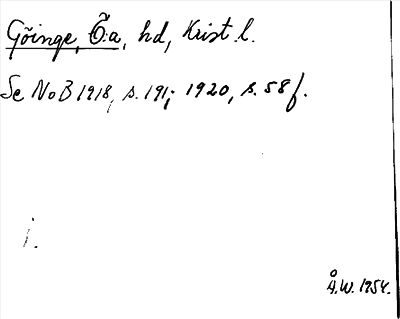 Göinge, Ö:a, hd, Krist l.
Se NoB 1918, s. 191; 1920, s. 58 f.
i.
Å.W. 1954.